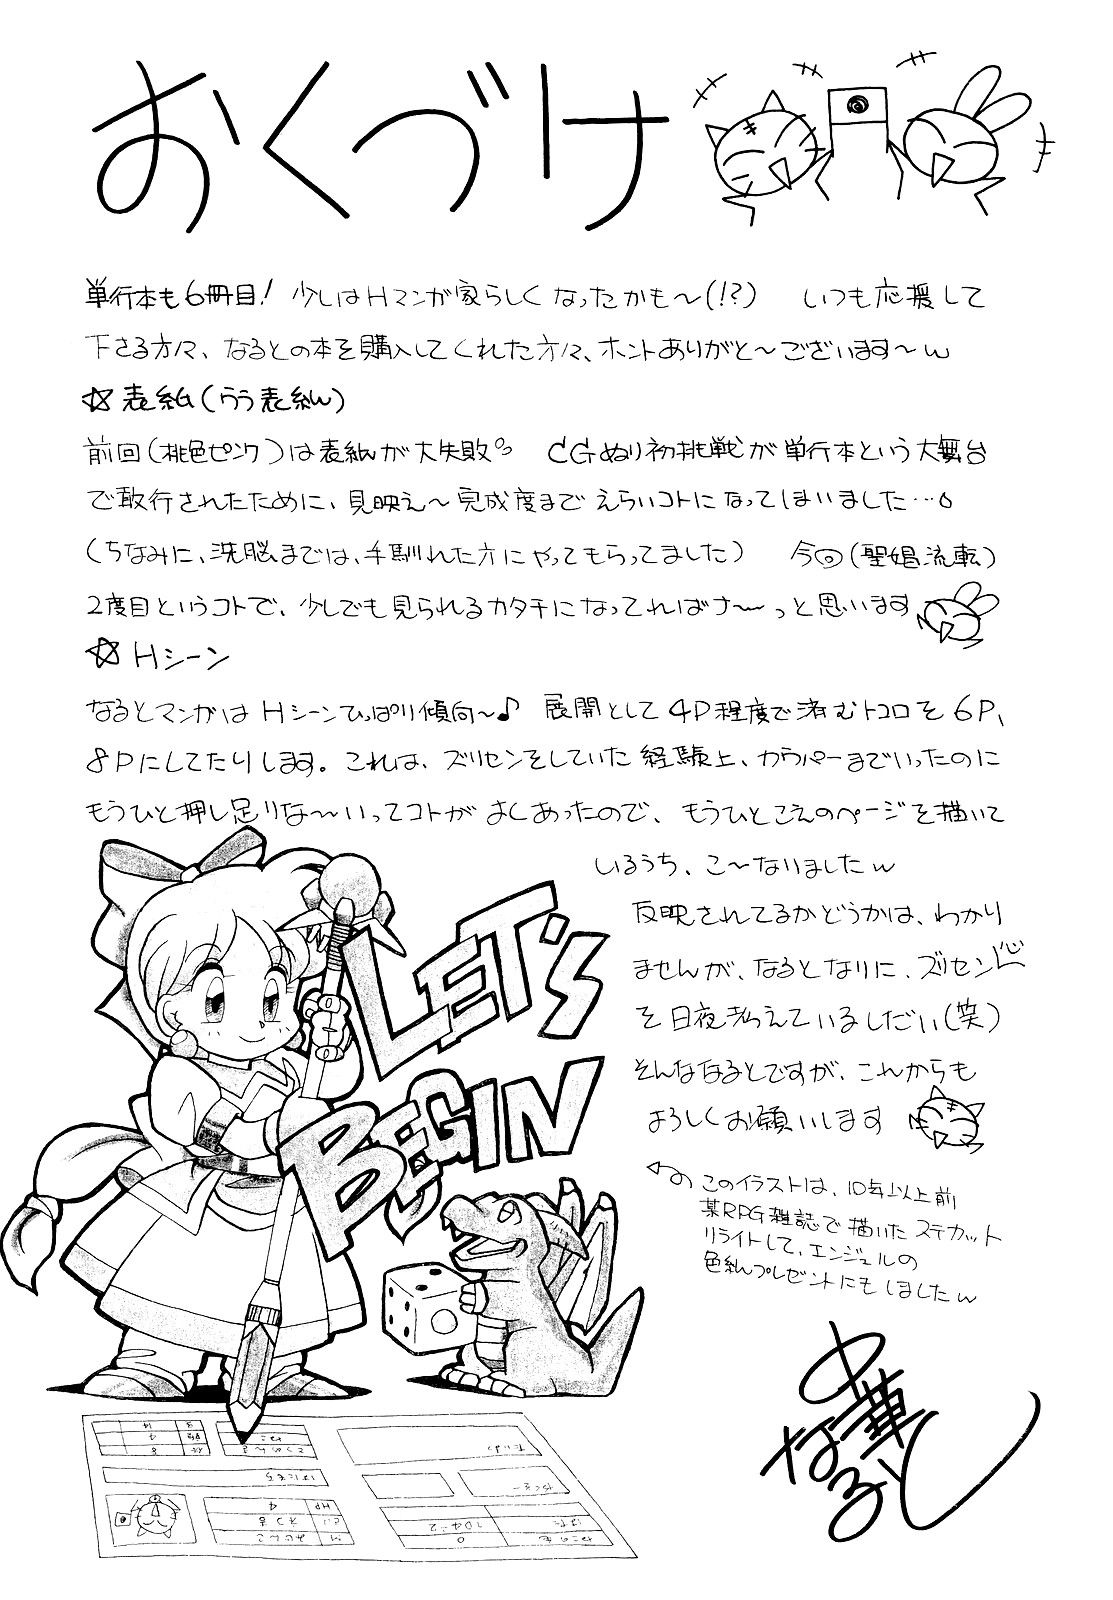 おくづけ
単行本も6冊目! 少しはHマンガ家らしくなったかも〜(!?) いつも応援して
下さる方々、なるとの本を購入してくれた方々、ホントありがと〜ございます〜w
☆表紙(うう表紙)
前回(桃色ピンク)は表紙が大失敗 CGぬり初挑戦が単行本という大舞台
で敢行されたために、見映え〜完成度までえらいコトになってしまいました…
(ちなみに、洗脳までは、手馴れた方にやってもらってました) 今回(聖娼流転)
2度目というコトで、少しでも見られるカタチになってればナ〜っと思います
☆Hシーン
なるとマンガはHシーンひっぱり傾向〜♪ 展開として4P程度で済むトコロを6P、
8Pにしてたりします。これは、ズリセンをしていた経験上、カウパーまでいったのに
もうひと押し足りな〜いってコトがよくあったので、もうひとこえのページを描いて
いるうち、こ〜なりましたw
反映されてるかどうかは、わかり
ませんが、なるとなりに、ズリセン
を日夜考えているしだい(笑)
そんななるとですが、これからも
よろしくお願いします
LET'S
BEGIN
このイラストは、10年以上前
某RPG雑誌で描いたステカット
リライトして、エンジェルの
色紙プレゼントにもしましたw
中華
なると
HP